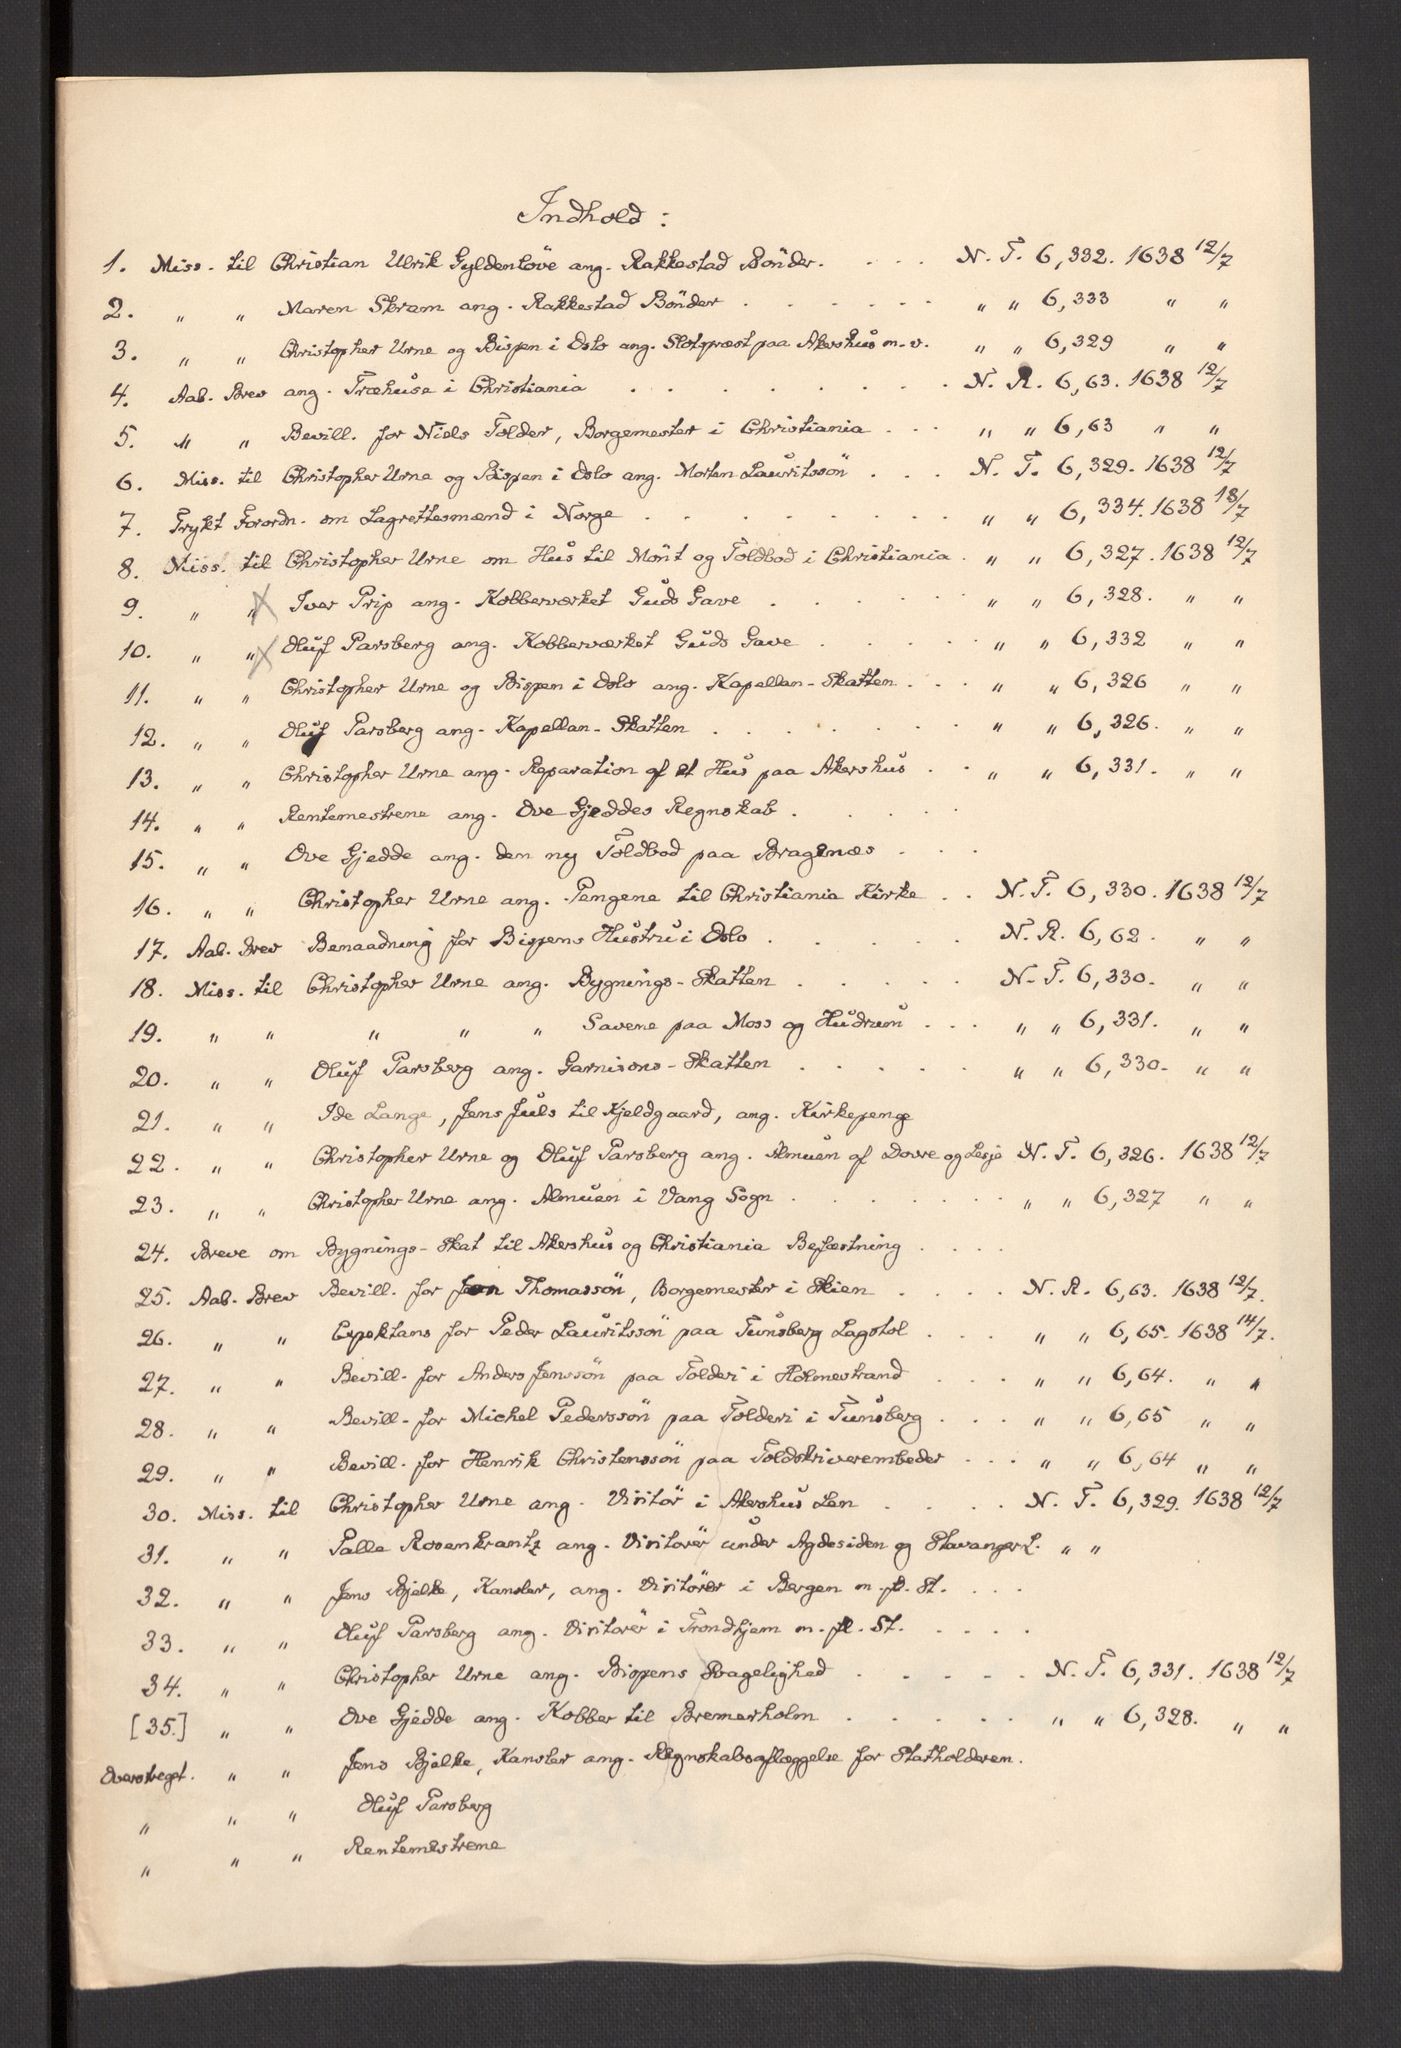 Indhold:
1. Miss. til Christian Ulrik Gyldenlöve ang. Rakkestad Bönder. . . . . N. T. 6,332. 1638 12/7
2. " " Maren Skram ang. Rakkestad Bönder . . . . . . " " 6,333 " "
3. " " Christopher Urne og Bispen i Oslo ang. Slotsprest paa Akershus m.v. " " 6,329 " "
4. Aab. Brev ang. Træhuse i Christiania . . . . . . . . N. R. 6,63. 1638 12/7
5. " " Bevill. for Niels Tolder, Borgemester i Christiania . . . " " 6,63 " "
6. Miss. til Christopher Urne og Bispen i Oslo ang. Morten Lauritssön . . . N. T. 6,329. 1638 12/7
7. Trykt Forordn. om Lagrettesmænd i Norge . . . . . . . . " " 6,334. 1638 13/7
8. Miss. til Christopher Urne om Hus til Mönt og Toldbod i Christiania . " " 6,327. 1638 12/7
9. " " Iver Prip ang. Kobberværket Guds Gave . . . . . " " 6,328. " "
10. " " Oluf Parsberg ang. Kobberværket Guds Gave . . . . . " " 6,332 " "
11. " " Christopher Urne og Bispen i Oslo ang. Kapellan-Skatten . . . " " 6,326 " "
12. " " Oluf Parsberg ang. Kapellan-Skatten . . . . . . . " " 6,326. " "
13. " " Christopher Urne ang. Reparation af et Hus paa Akershus . . " " 6,331. " "
14. " " Rentemestrene ang. Ove Gjeddes Regnskab . . . . .
15. " " Ove Gjedde ang. den ny Toldbod paa Bragenæs . . .
16. " " Christopher Urne ang. Pengene til Christiania Kirke . . N. T. 6,330. 1638 12/7
17. Aab. Brev Benaadning for Bispens Hustru i Oslo . . . . . N. R. 6,62. " "
18. Miss. til Christopher Urne ang. Bygnings-Skatten . . . . . N. T. 6,330. " "
19. " " " " " Savene paa Moss og Hudrum . . . " " 6,331. " "
20. " " Oluf Parsberg ang. Garnisons-Skatten . . . . . . " " 6,330. " "
21. " " Ide Lange, Jens Juls til Kjeldgaard, ang. Kirkepenge
22. " " Christopher Urne og Oluf Parsberg ang. Almuen af Dovre og Lesje N. T. 6,326. 1638 12/7
23. " " Christopher Urne ang. Almuen i Vang Sogn . . . . . . . " " 6,327 " "
24. Breve om Bygnings-Skat til Akershus og Christiania Befæstning . . . .
25. Aab. Brev Bevill. for Jon Thomassön, Borgemester i Skien . . . . N. R. 6,63. 1638 12/7.
26. " " Expektans for Peder Lauritssön paa Tunsberg Lagstol . . . " " 6,65. 1638 14/7.
27. " " Bevill. for Anders Jenssön paa Tolderi i Holmestrand . . . " " 6,64. " "
28. " " Bevill. for Michel Pederssön paa Tolderi i Tunsberg . . . " " 6,65 " "
29. " " Bevill. for Henrik Christenssön paa Toldskriverembeder . . . " " 6,64 " "
30. Miss. til Christopher Urne ang. Visitör i Akershus Len . . . . N. T. 6,329. 1638 12/7
31. " " Palle Rosenkrantz ang. Visitörer under Agdesiden og Stavanger L. " "
32. " " Jens Bjelke, Kansler, ang. Visitörer i Bergen m. fl. St. . . .
33. " " Oluf Parsberg ang. Visitörer i Trondhjem m. fl. St. . . . .
34. " " Christopher Urne ang. Bispens Bragelighed . . . . . N. T. 6,331. 1638 12/7
[35.] " " Ove Gjedde ang. Kobber til Bremerholm . . . . . " " 6,328. " "
Overstreget. " " Jens Bjelke, Kansler ang. Regnskabsaflæggelse for Statholderen.
" " " Oluf Parsberg
" " " Rentemestrene